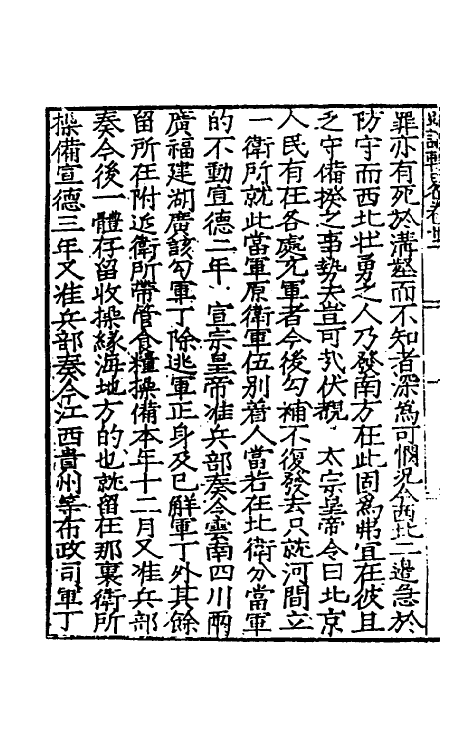 罪亦有死於溝壑而不知者深為可憫況今西北二邊急於
防守而西北壯勇之人乃發南方在此固為弗宜在彼且
乏守備揆之事勢夫豈可哉伏覩 太宗皇帝令曰北京
人民有在各處充軍者今後勾補不復發去只就河間立
一衛所就此當軍原衛軍伍別著人當若在北衛分當軍
的不動宣德二年 宣宗皇帝准兵部奏令雲南四川兩
廣福建湖廣該勾軍丁除逃軍正身及已解軍丁外其餘
留所在附近衛所帶管食糧操備本年十二月又准兵部
奏今後一體存留收操緣海地方的也就留在那裏衛所
操備宣德三年又准兵部奏令江西貴州等布政司軍丁